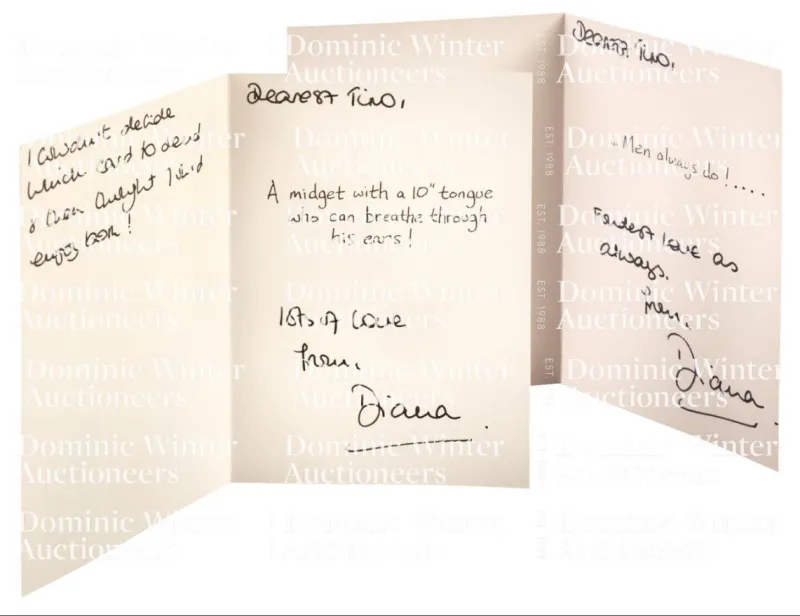 I couldn't decide
which card to send
& then thought
enjoy both!
Dearest Tino,
A midget with a 10" tongue
who can breathe through
his ears!
lots of love
from,
Diana
Dearest Tino,
"Men always do!.....
Fondest love as
always.
from,
Diana.
Dominic Winter
Auctioneers
EST. 1988